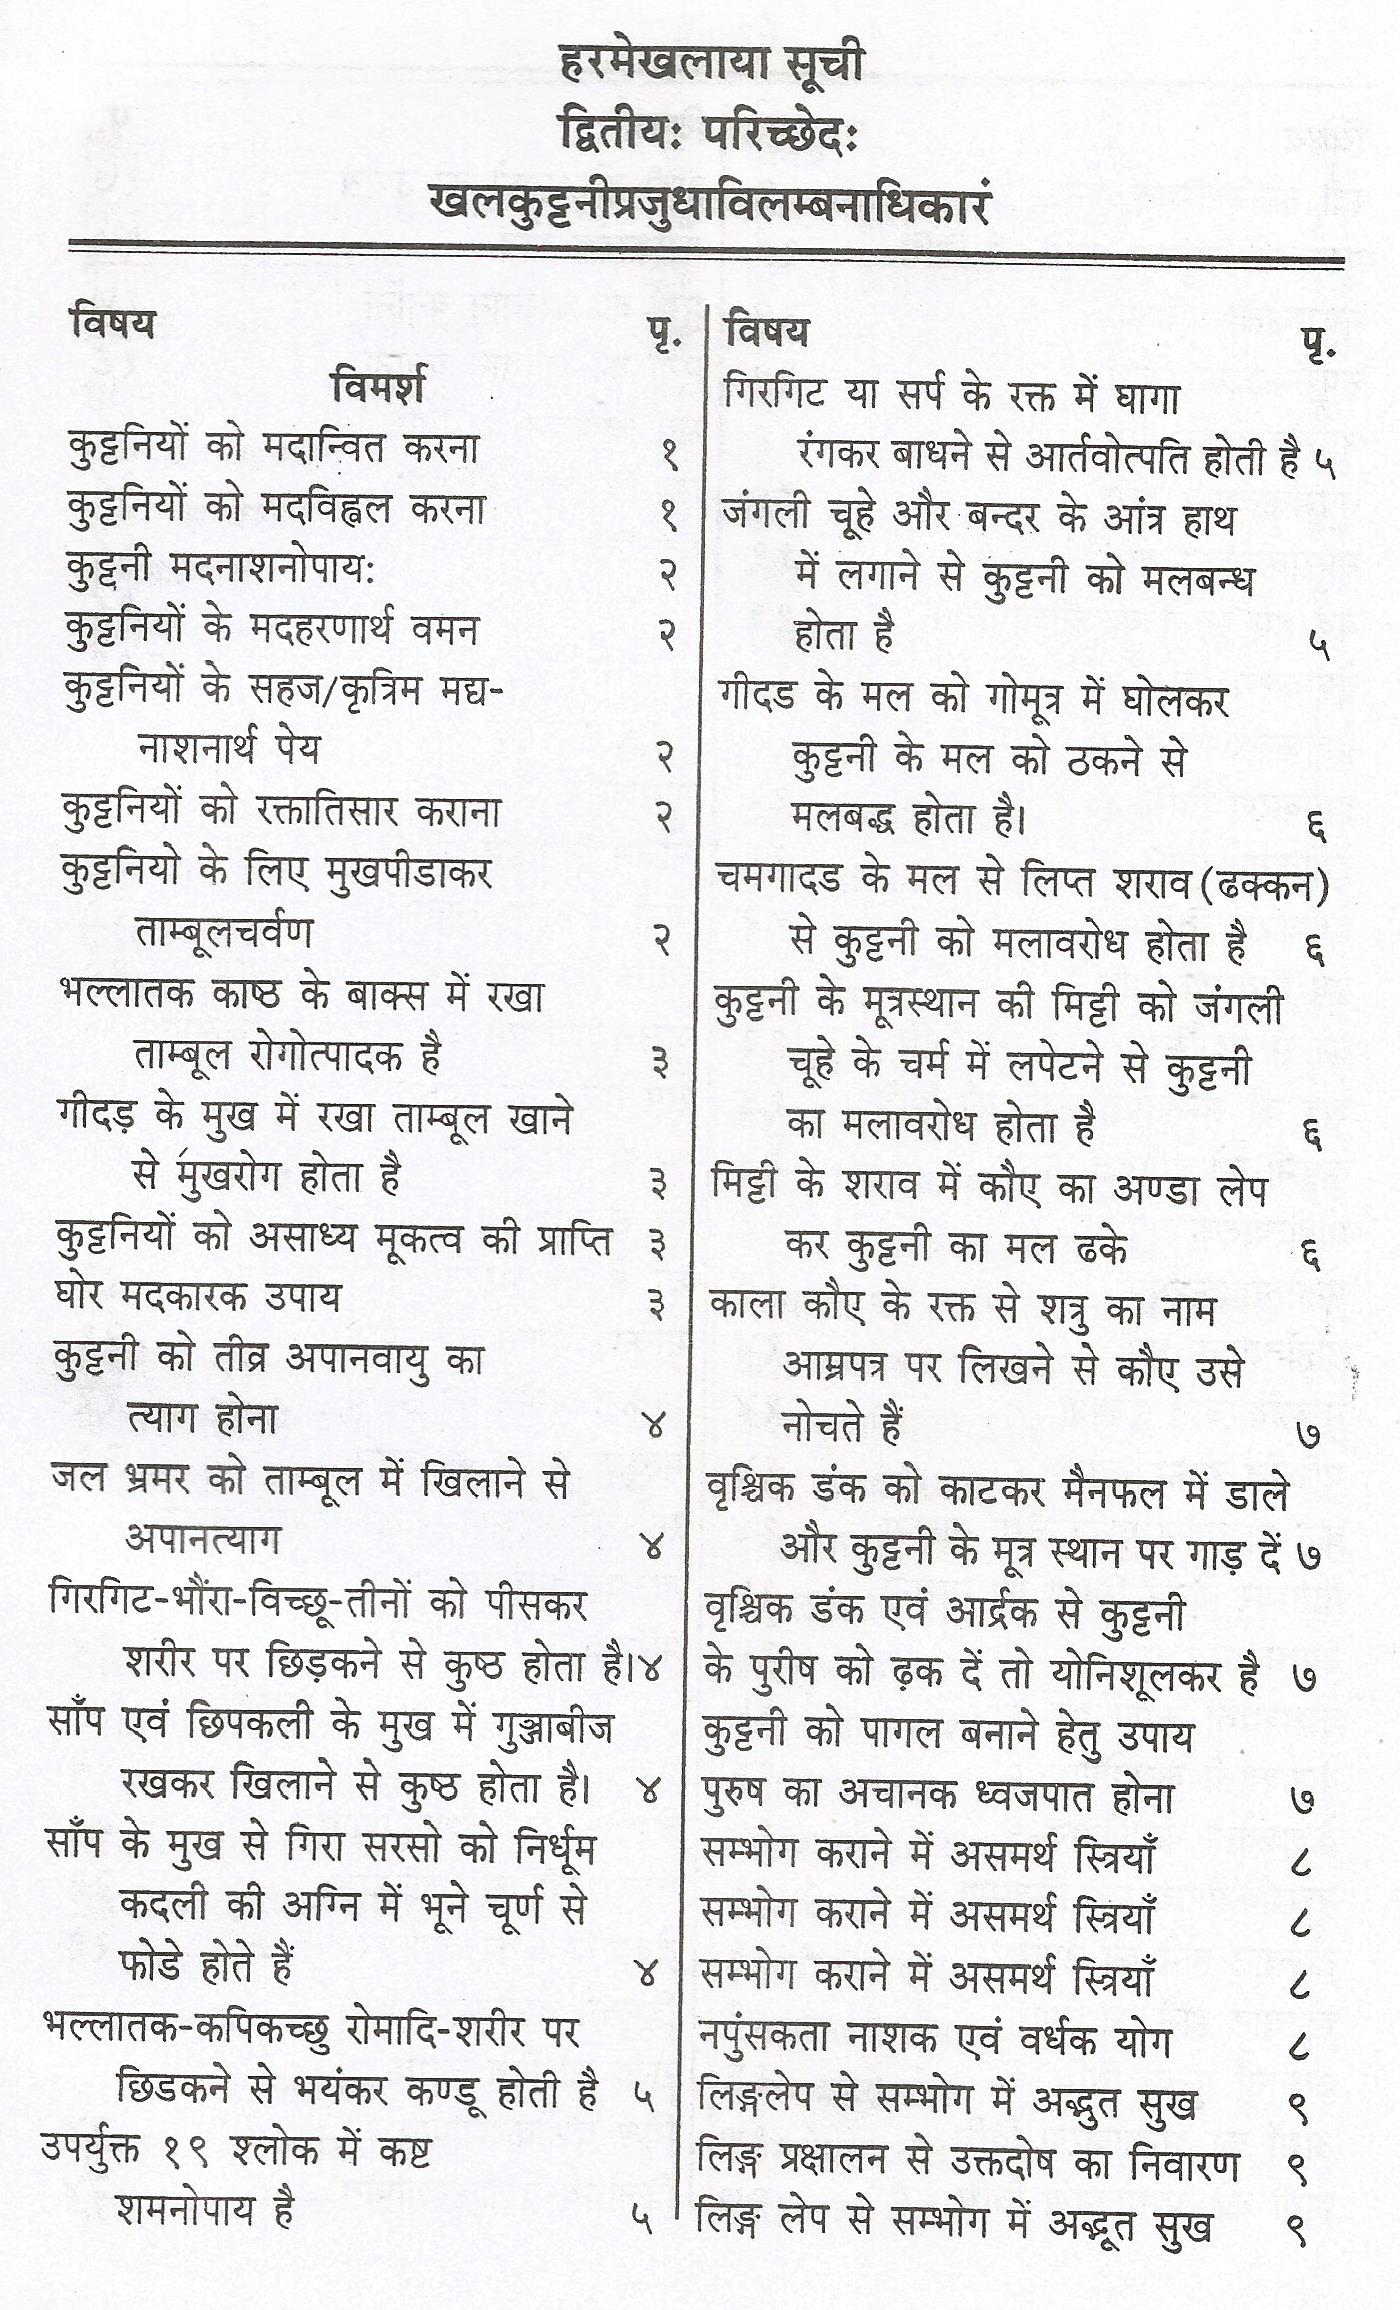 हरमेखलाया सूची
द्वितीयः परिच्छेदः
खलकुट्टनीप्रजुधाविलम्बनाधिकारं
विषय पृ.
विमर्श
कुट्टनियों को मदान्वित करना १
कुट्टनियों को मदविह्वल करना १
कुट्टनी मदनाशनोपाय: २
कुट्टनियों के मदहरणार्थ वमन २
कुट्टनियों के सहज/कृत्रिम मद्य-
नाशनार्थ पेय २
कुट्टनियों को रक्तातिसार कराना २
कुट्टनियो के लिए मुखपीडाकर
ताम्बूलचर्वण २
भल्लातक काष्ठ के बाक्स में रखा
ताम्बूल रोगोत्पादक है ३
गीदड़ के मुख में रखा ताम्बूल खाने
से मुखरोग होता है ३
कुट्टनियों को असाध्य मूकत्व की प्राप्ति ३
घोर मदकारक उपाय ३
कुट्टनी को तीव्र अपानवायु का
त्याग होना ४
जल भ्रमर को ताम्बूल में खिलाने से
अपानत्याग ४
गिरगिट-भौंरा-विच्छू-तीनों को पीसकर
शरीर पर छिड़कने से कुष्ठ होता है। ४
साँप एवं छिपकली के मुख में गुञ्जाबीज
रखकर खिलाने से कुष्ठ होता है। ४
साँप के मुख से गिरा सरसो को निर्धूम
कदली की अग्नि में भूने चूर्ण से
फोडे होते हैं ४
भल्लातक-कपिकच्छु रोमादि-शरीर पर
छिडकने से भयंकर कण्डू होती है ५
उपर्युक्त १९ श्लोक में कष्ट
शमनोपाय है ५
विषय पृ.
गिरगिट या सर्प के रक्त में घागा
रंगकर बाधने से आर्तवोत्पति होती है ५
जंगली चूहे और बन्दर के आंत्र हाथ
में लगाने से कुट्टनी को मलबन्ध
होता है ५
गीदड के मल को गोमूत्र में घोलकर
कुट्टनी के मल को ठकने से
मलबद्ध होता है। ६
चमगादड के मल से लिप्त शराव (ढक्कन)
से कुट्टनी को मलावरोध होता है ६
कुट्टनी के मूत्रस्थान की मिट्टी को जंगली
चूहे के चर्म में लपेटने से कुट्टनी
का मलावरोध होता है ६
मिट्टी के शराव में कौए का अण्डा लेप
कर कुट्टनी का मल ढके ६
काला कौए के रक्त से शत्रु का नाम
आम्रपत्र पर लिखने से कौए उसे
नोचते हैं ७
वृश्चिक डंक को काटकर मैनफल में डाले
और कुट्टनी के मूत्र स्थान पर गाड़ दें ७
वृश्चिक डंक एवं आर्द्रक से कुट्टनी
के पुरीष को ढ़क दें तो योनिशूलकर है ७
कुट्टनी को पागल बनाने हेतु उपाय
पुरुष का अचानक ध्वजपात होना ७
सम्भोग कराने में असमर्थ स्त्रियाँ ८
सम्भोग कराने में असमर्थ स्त्रियाँ ८
सम्भोग कराने में असमर्थ स्त्रियाँ ८
नपुंसकता नाशक एवं वर्धक योग ८
लिङ्गलेप से सम्भोग में अद्भुत सुख ९
लिङ्ग प्रक्षालन से उक्तदोष का निवारण ९
लिङ्ग लेप से सम्भोग में अद्भूत सुख ९